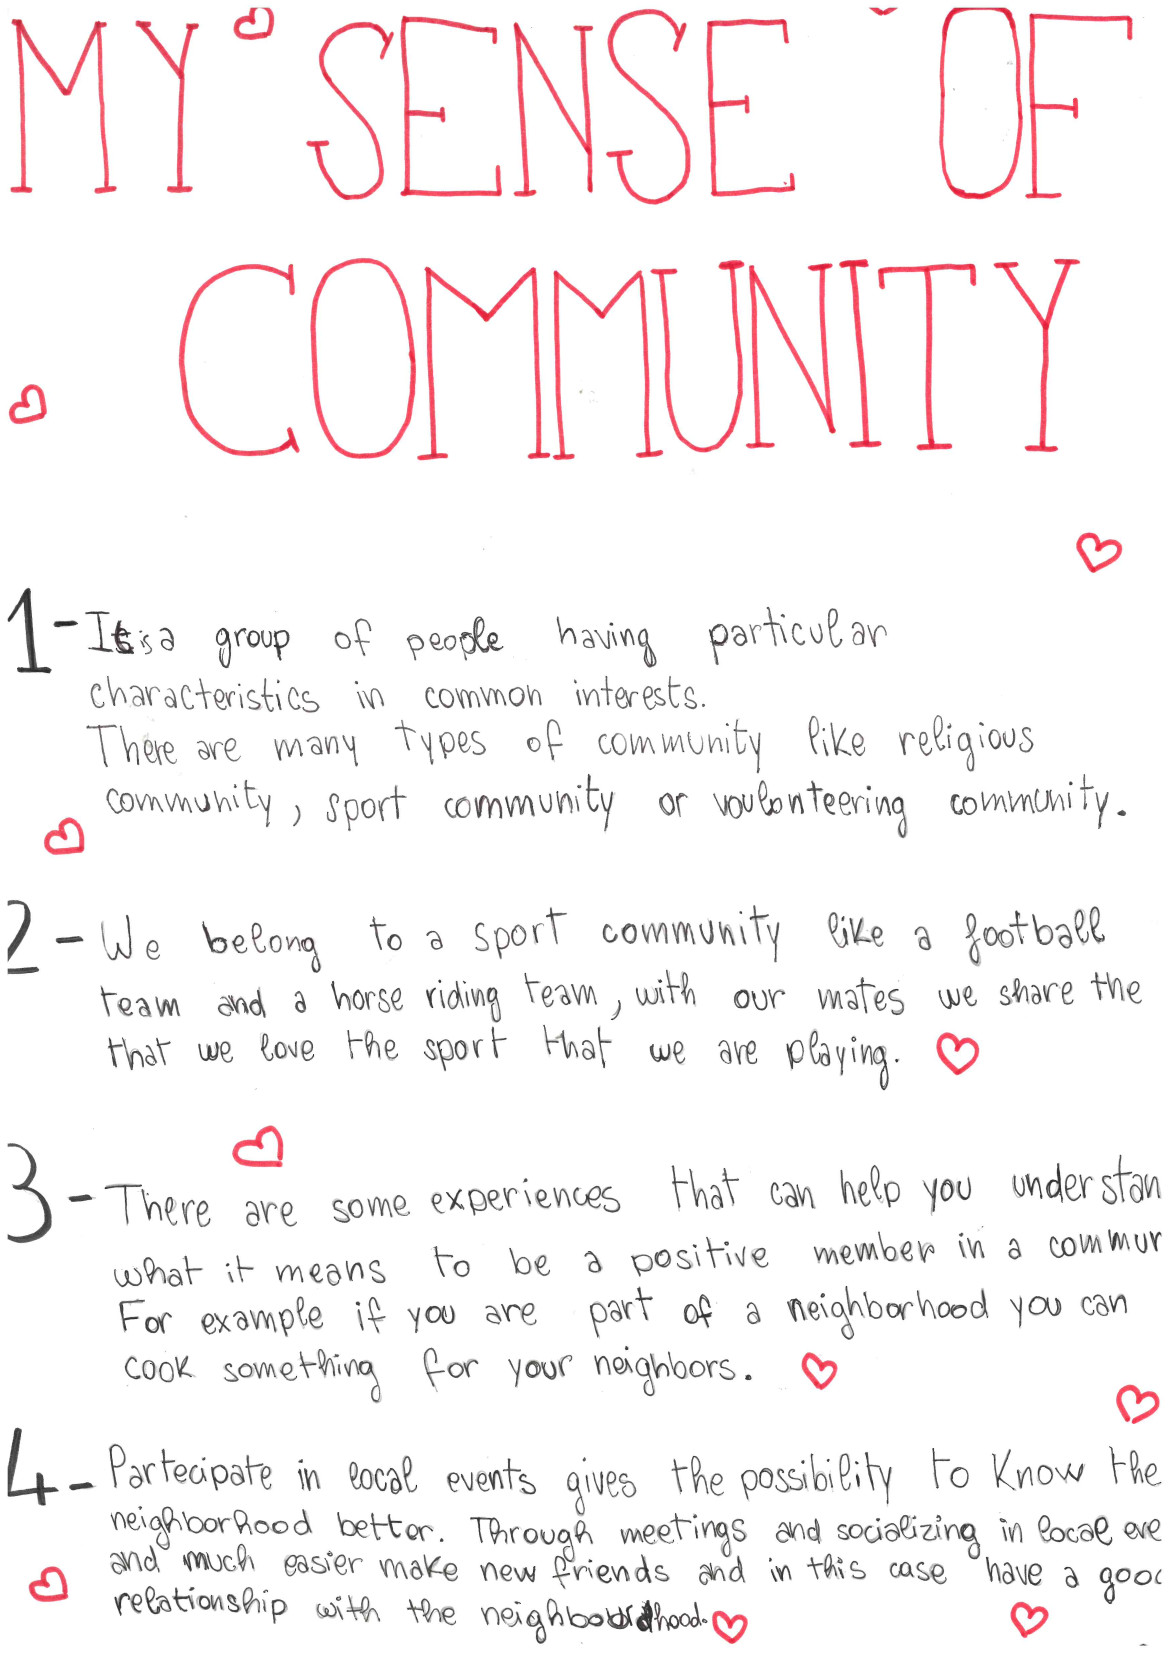 MY SENSE OF
COMMUNITY
1- It is a group of people having particular
characteristics in common interests.
There are many types of community like religious
community, sport community or voulonteering community.
2- We belong to a sport community like a football
team and a horse riding team, with our mates we share the
that we love the sport that we are playing.
3- There are some experiences that can help you understan
what it means to be a positive member in a commun
For example if you are part of a neighborhood you can
cook something for your neighbors.
4- Partecipate in local events gives the possibility to know the
neighborhood better. Through meetings and socializing in local eve
and much easier make new friends and in this case have a good
relationship with the neighboordhood.